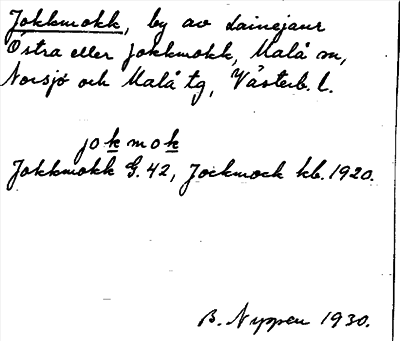 Jokkmokk, by av Lainejaur
Östra eller Jokkmokk, Malå sn,
Norsjö och Malå tg, Västerb. l.
jokmok
Jokkmokk G. 42, Jockmock kb. 1920.
B. Nyppen 1930.